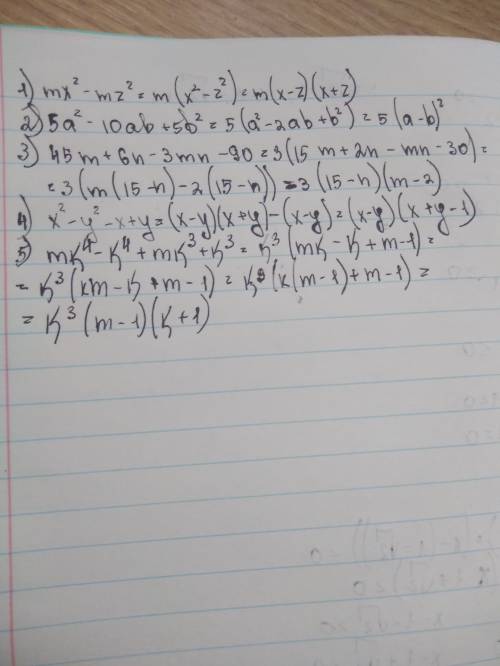 1) mx² - mz² = m(x² - z²) = m(x-z)(x+z)
2) 5a² - 10ab + 5b² = 5(a² - 2ab + b²) = 5(a-b)²
3) 45m + 6n - 3mn - 90 = 3(15m + 2n - mn - 30) =
= 3(m(15-n) - 2(15-n)) = 3(15-n)(m-2)
4) x² - y² - x + y = (x-y)(x+y) - (x-y) = (x-y)(x+y-1)
5) mK⁴ - K⁴ + mK³ + K³ = K³(mK - K + m - 1) =
= K³(Km - K + m - 1) = K³(K(m-1) + m - 1) =
= K³(m-1)(K+1)